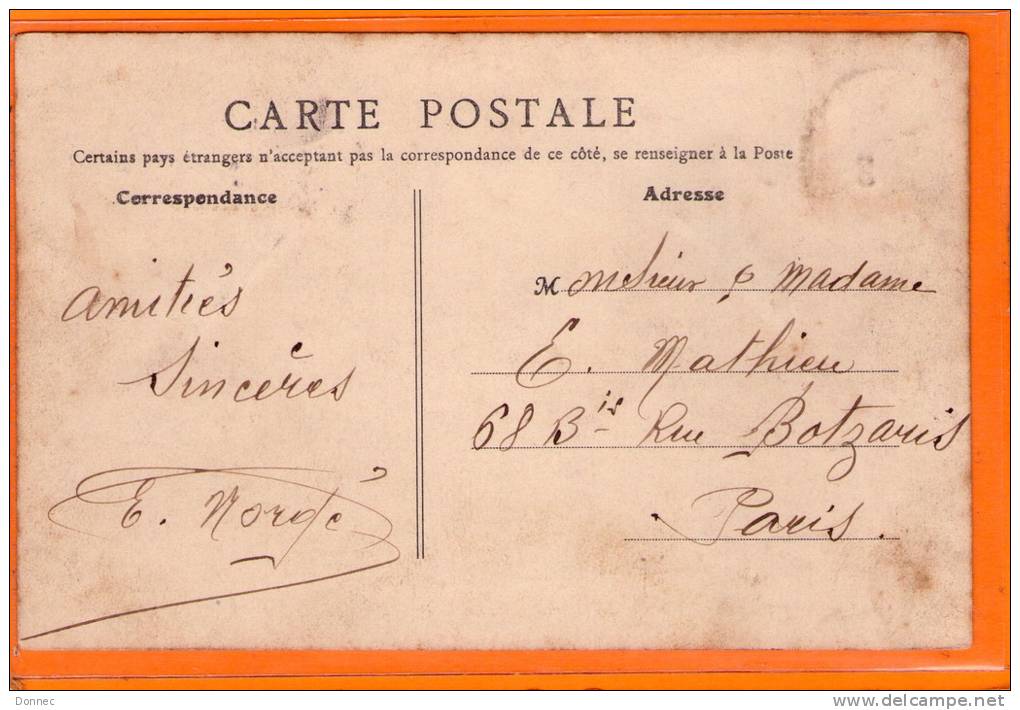 CARTE POSTALE
Certains pays étrangers n'acceptant pas la correspondance de ce côté, se renseigner à la Poste
Correspondance
Adresse
Amitiés
Sincères
E.
Monsieur & Madame
E. Mathieu
68 Bis Rue Botzaris
Paris.
Donnec
www.delcampe.net